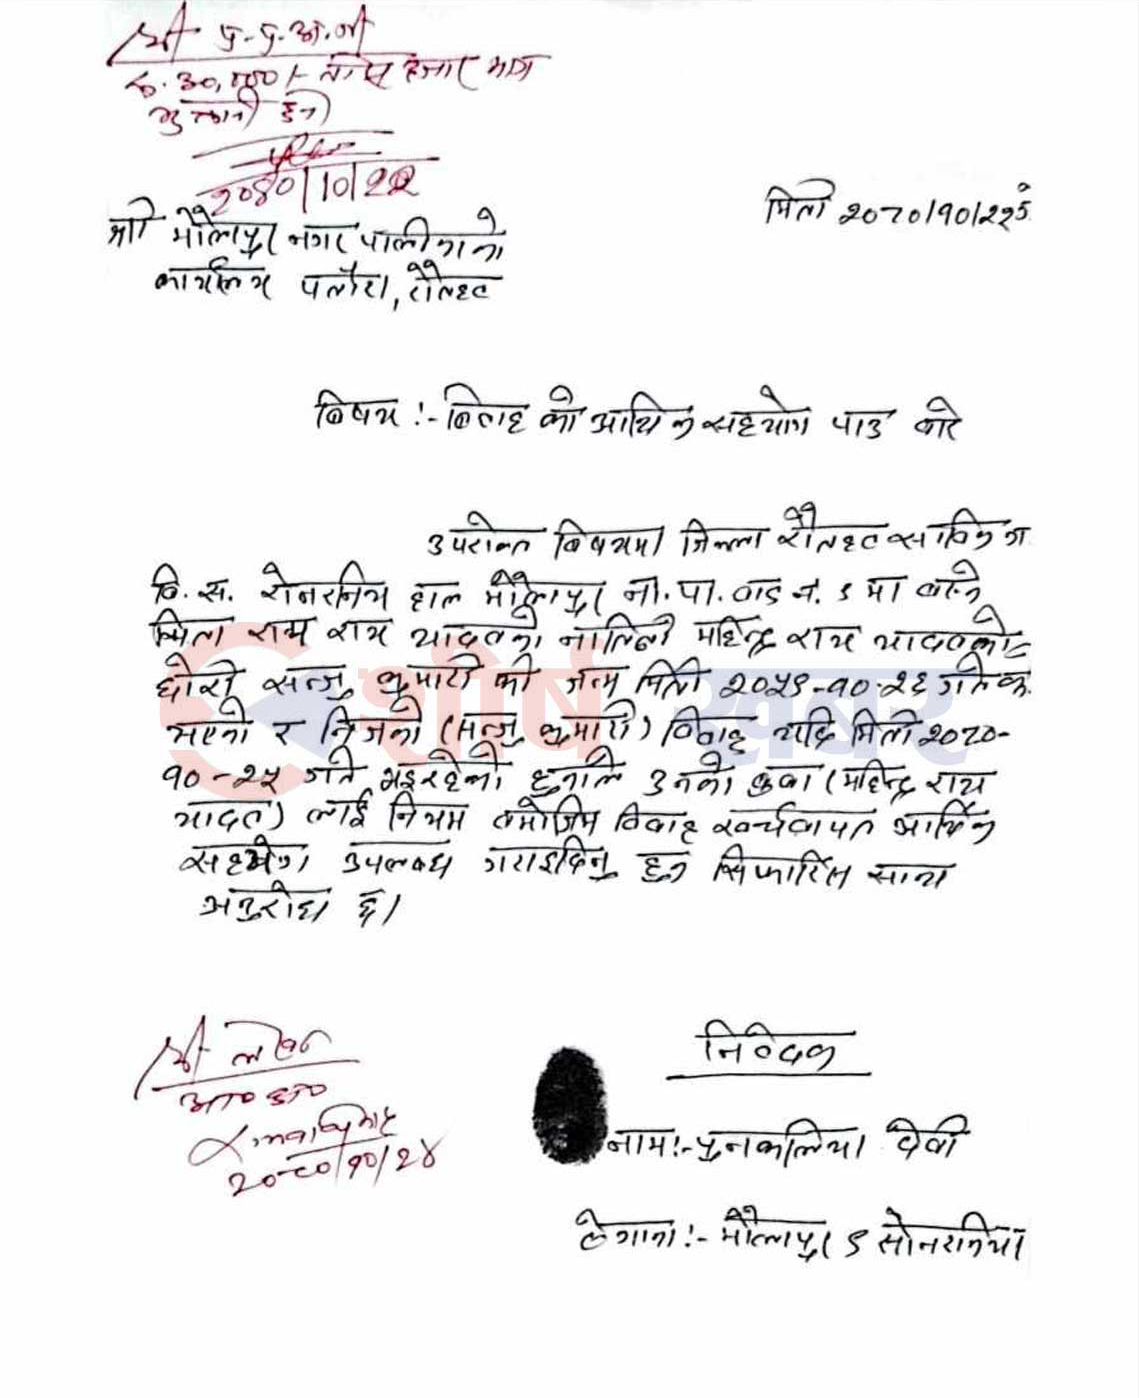 श्री प्र.प्र.अ.ज्यू
रु.३०,०००/- तीस हजार मात्र
भुक्तानी हुने
२०८०/१०/२२
मिती २०८०/१०/२२
श्री मौलापुर नगर पालीकाको
कार्यालय पतौरा, रौतहट
बिषय :- बिवाह को आर्थिक सहयोग पाउ बारे
उपरोक्त बिषयमा जिल्ला रौतहट साविक गा
वि.स. सोनरनिया हाल मौलापुर न.पा. वाड नं. ९ मा बस्ने
राम राय यादवको नातिनी महिन्द्र राय यादवको
छोरी सन्जु कुमारी को जन्म मिती २०५९-१०-२६ गते
भएको र निजको (सन्जु कुमारी) विवाह यहि मिती २०८०-
१०-२५ गते भइरहेको हुनाले उनको बुबा (महिन्द्र राय
यादव) लाई नियम बमोजिम विवाह खर्चवापत आर्थिक
सहयोग उपलब्ध गराइदिनु हुन सिफारिस साथ
अनुरोध छ।
श्री लेखा
आ०प्र०
२०८०/१०/२४
निवेदक
नाम:- पुनकलिया देवी
ठेगाना:- मौलापुर ९ सोनरनिया
शीर्ष खबर